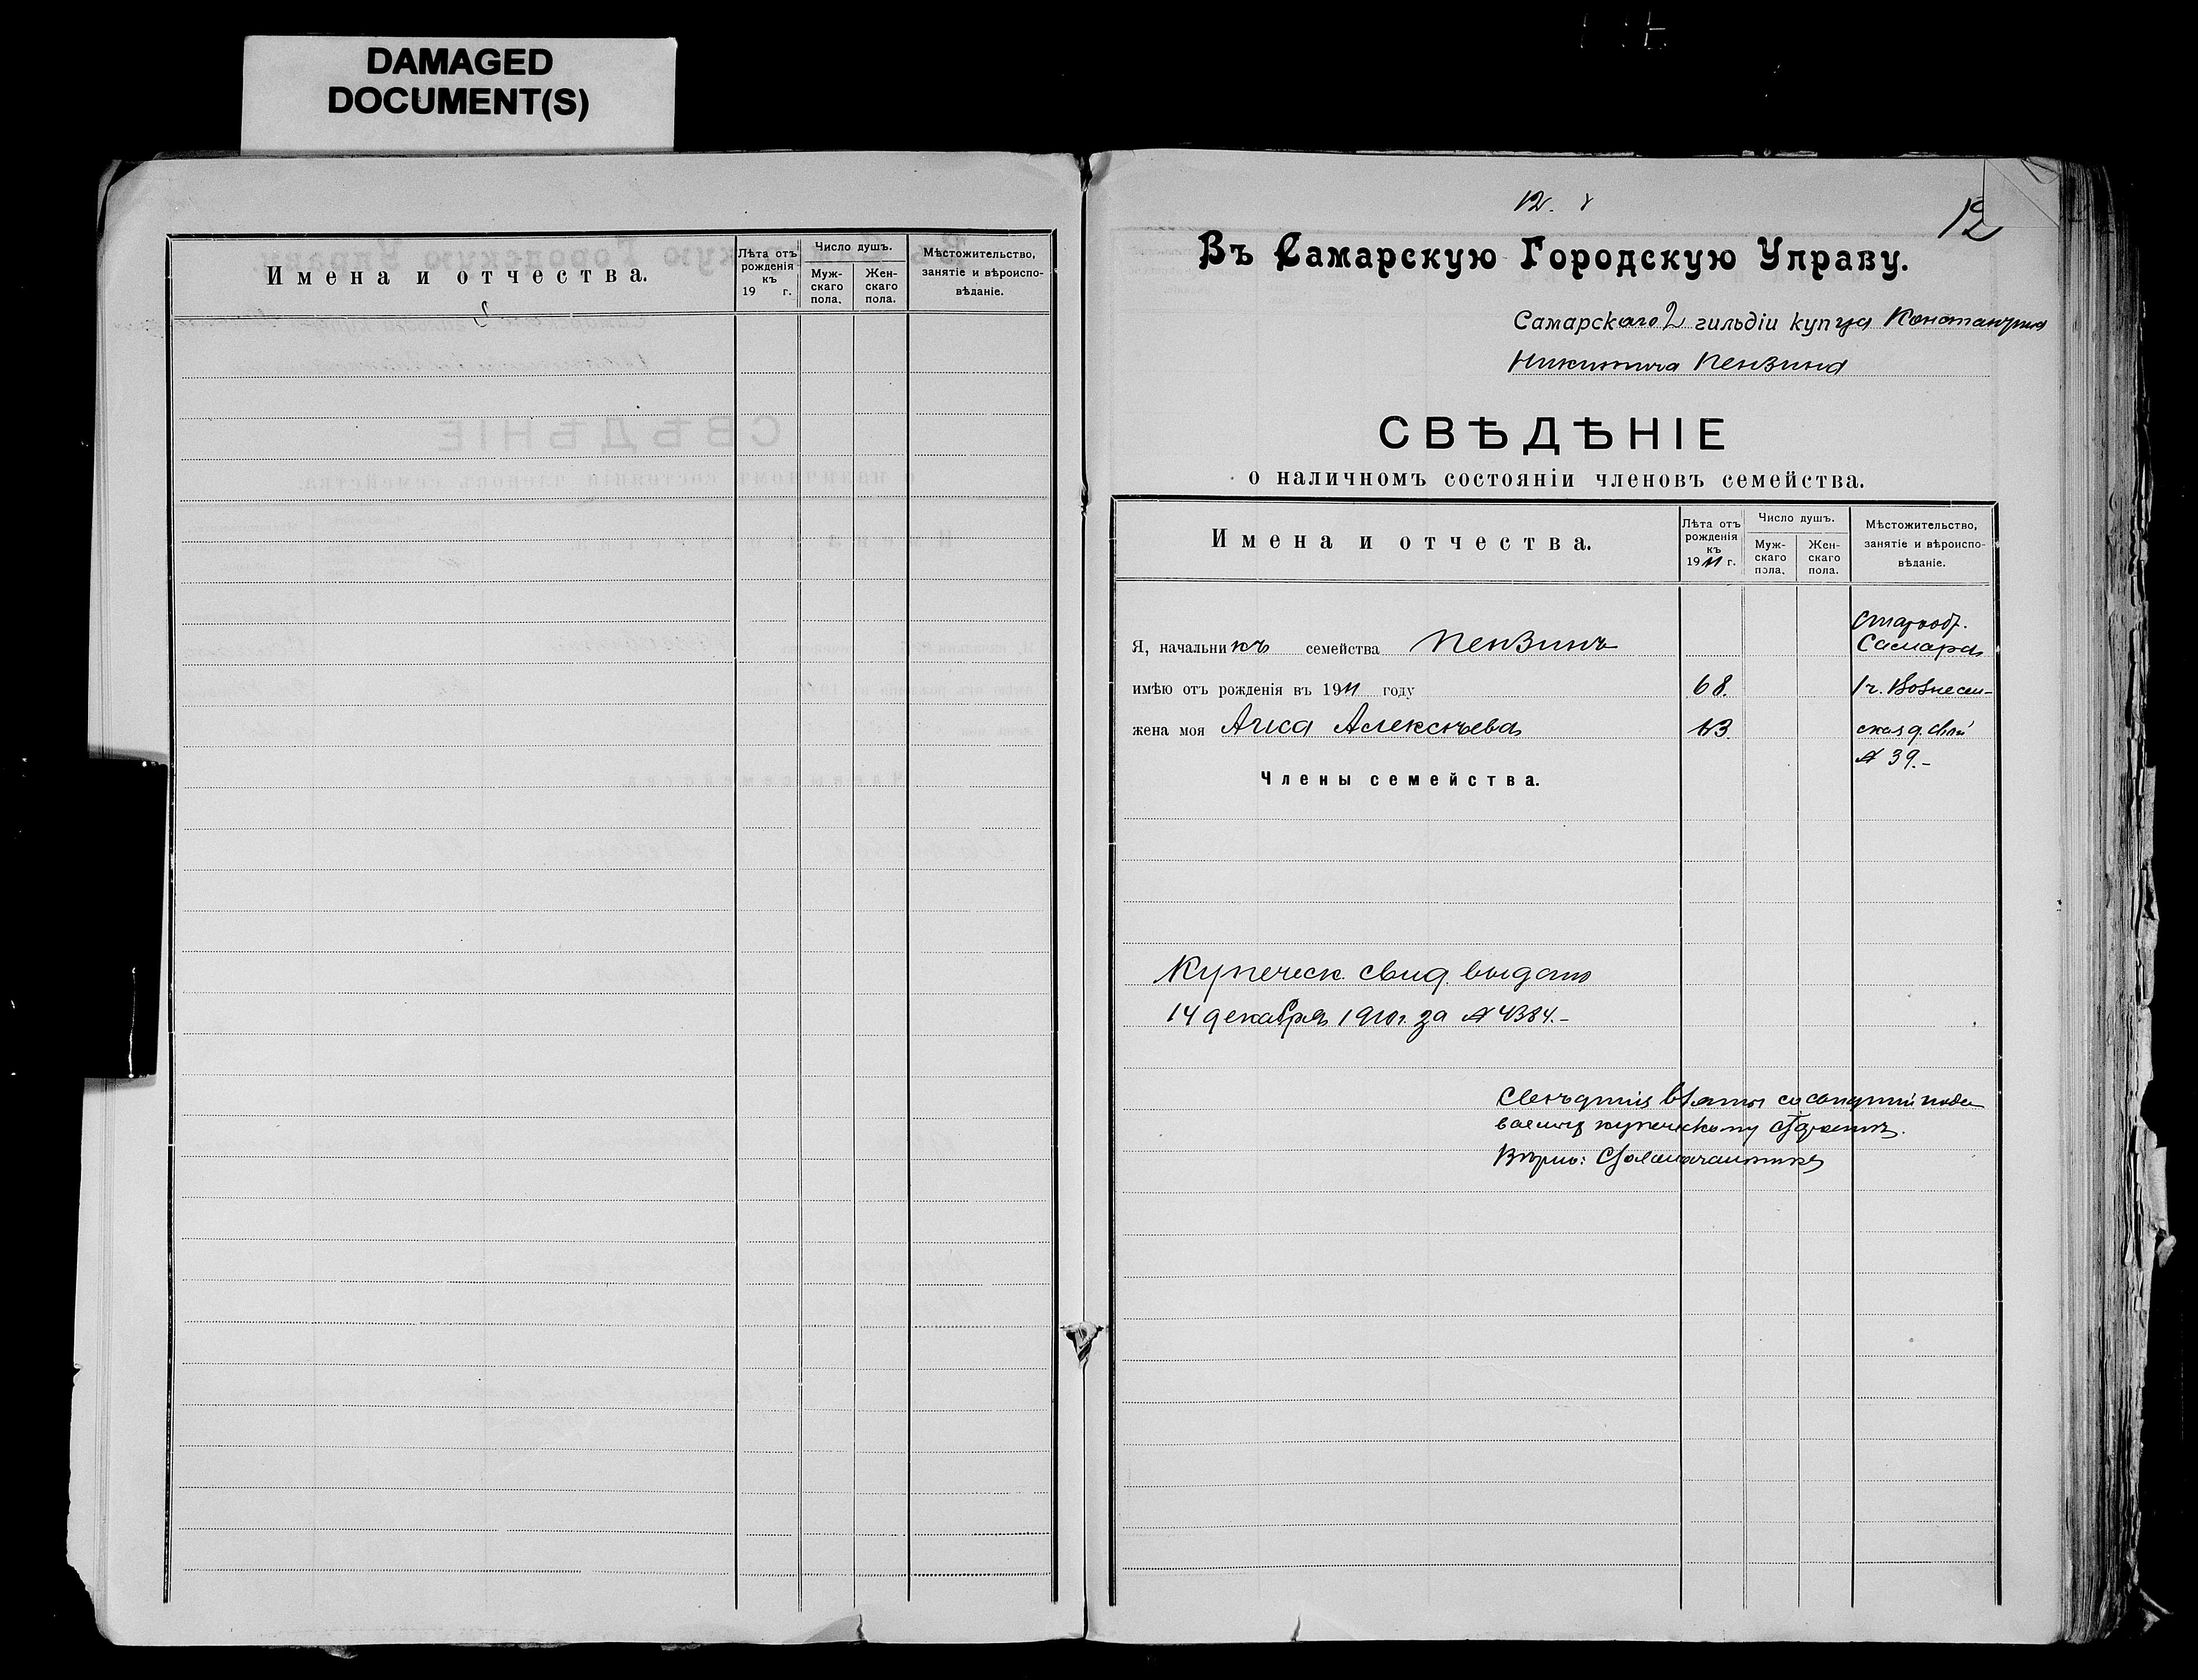 DAMAGED
DOCUMENT(S)
Имена и отчества.
Лѣта отъ рожденія къ 19 г.
Число душъ.
Мужскаго пола.
Женскаго пола.
Мѣстожительство, занятіе и вѣроисповѣданіе.
12.
12
Въ Самарскую Городскую Управу.
Самарскаго 2 гильдіи купца Константина
Никитича Пензина
СВѢДѢНІЕ
о наличномъ состояніи членовъ семейства.
Имена и отчества.
Лѣта отъ рожденія къ 1911 г.
Число душъ.
Мужскаго пола.
Женскаго пола.
Мѣстожительство, занятіе и вѣроисповѣданіе.
Старооб.
Я, начальникъ семейства Пензинъ Самара
имѣю отъ рожденія въ 1911 году 68. 1 ч. Вознесен-
жена моя Алексѣева ская д.
№ 39.-
Члены семейства.
Купеческ. свид. выдано
14 декабря 1910 г. за №
Свѣдѣнія взяты
купеческому
Вѣрно: